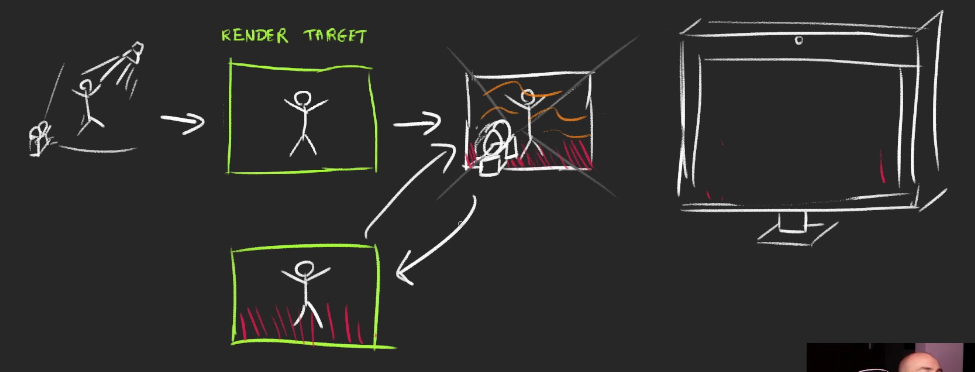 RENDER TARGET